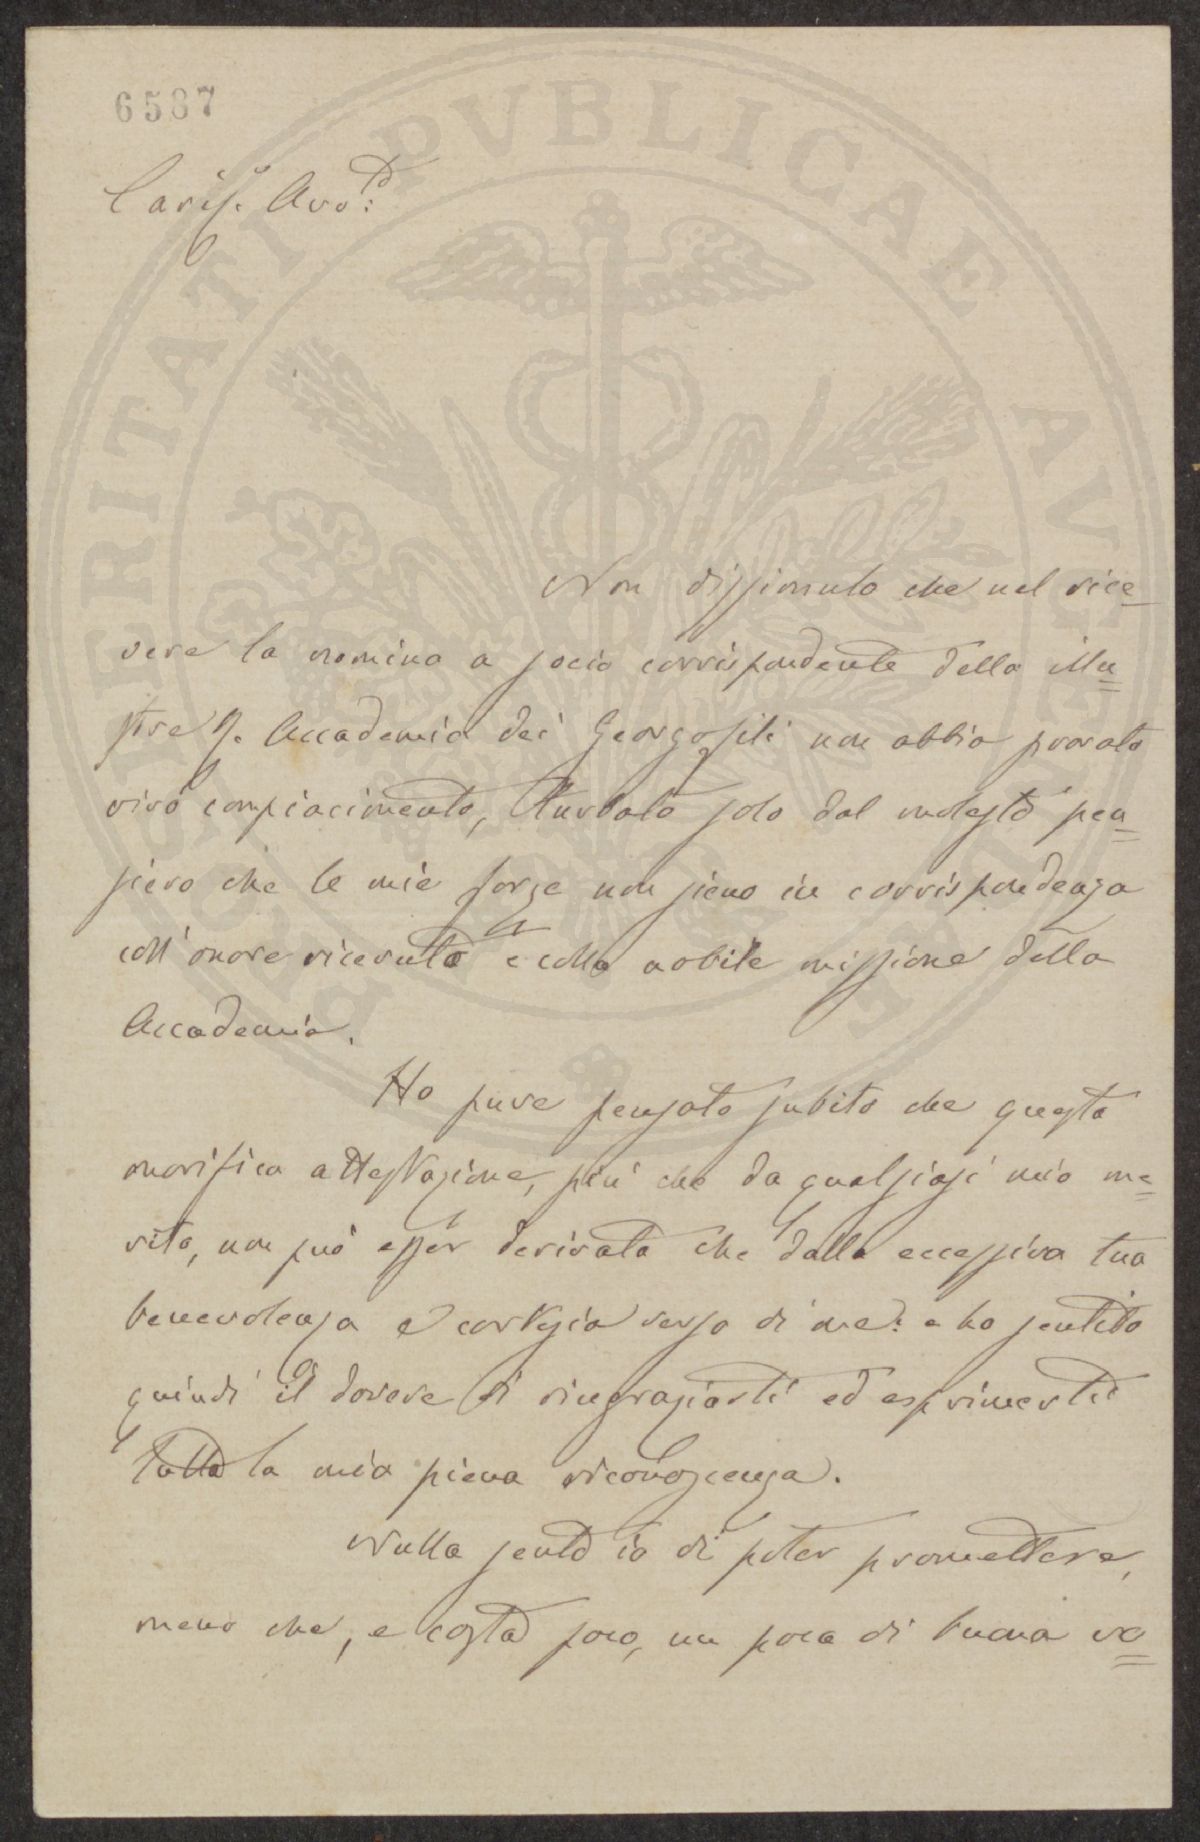 6587
Cariss.º Avv.º
Non dissimulo che nel rice=
vere la nomina a socio corrispondente della Illu=
stre R. Accademia dei Georgofili non abbia provato
vivo compiacimento, turbato solo dal molesto pen=
siero che le mie forze non sieno in corrispondenza
coll'onore ricevuto e colla nobile missione della
Accademia.
Ho pure pensato subito che questa
onorifica attestazione, più che da qualsiasi mio me=
rito, non può esser derivata che dalla eccessiva tua
benevolenza e cortesia verso di me: e ho sentito
quindi il dovere di ringraziarti ed esprimerti
tutta la mia piena riconoscenza.
Nulla sento io di poter promettere,
meno che, e costa poco, un poca di buona vo=
PVBLICAE